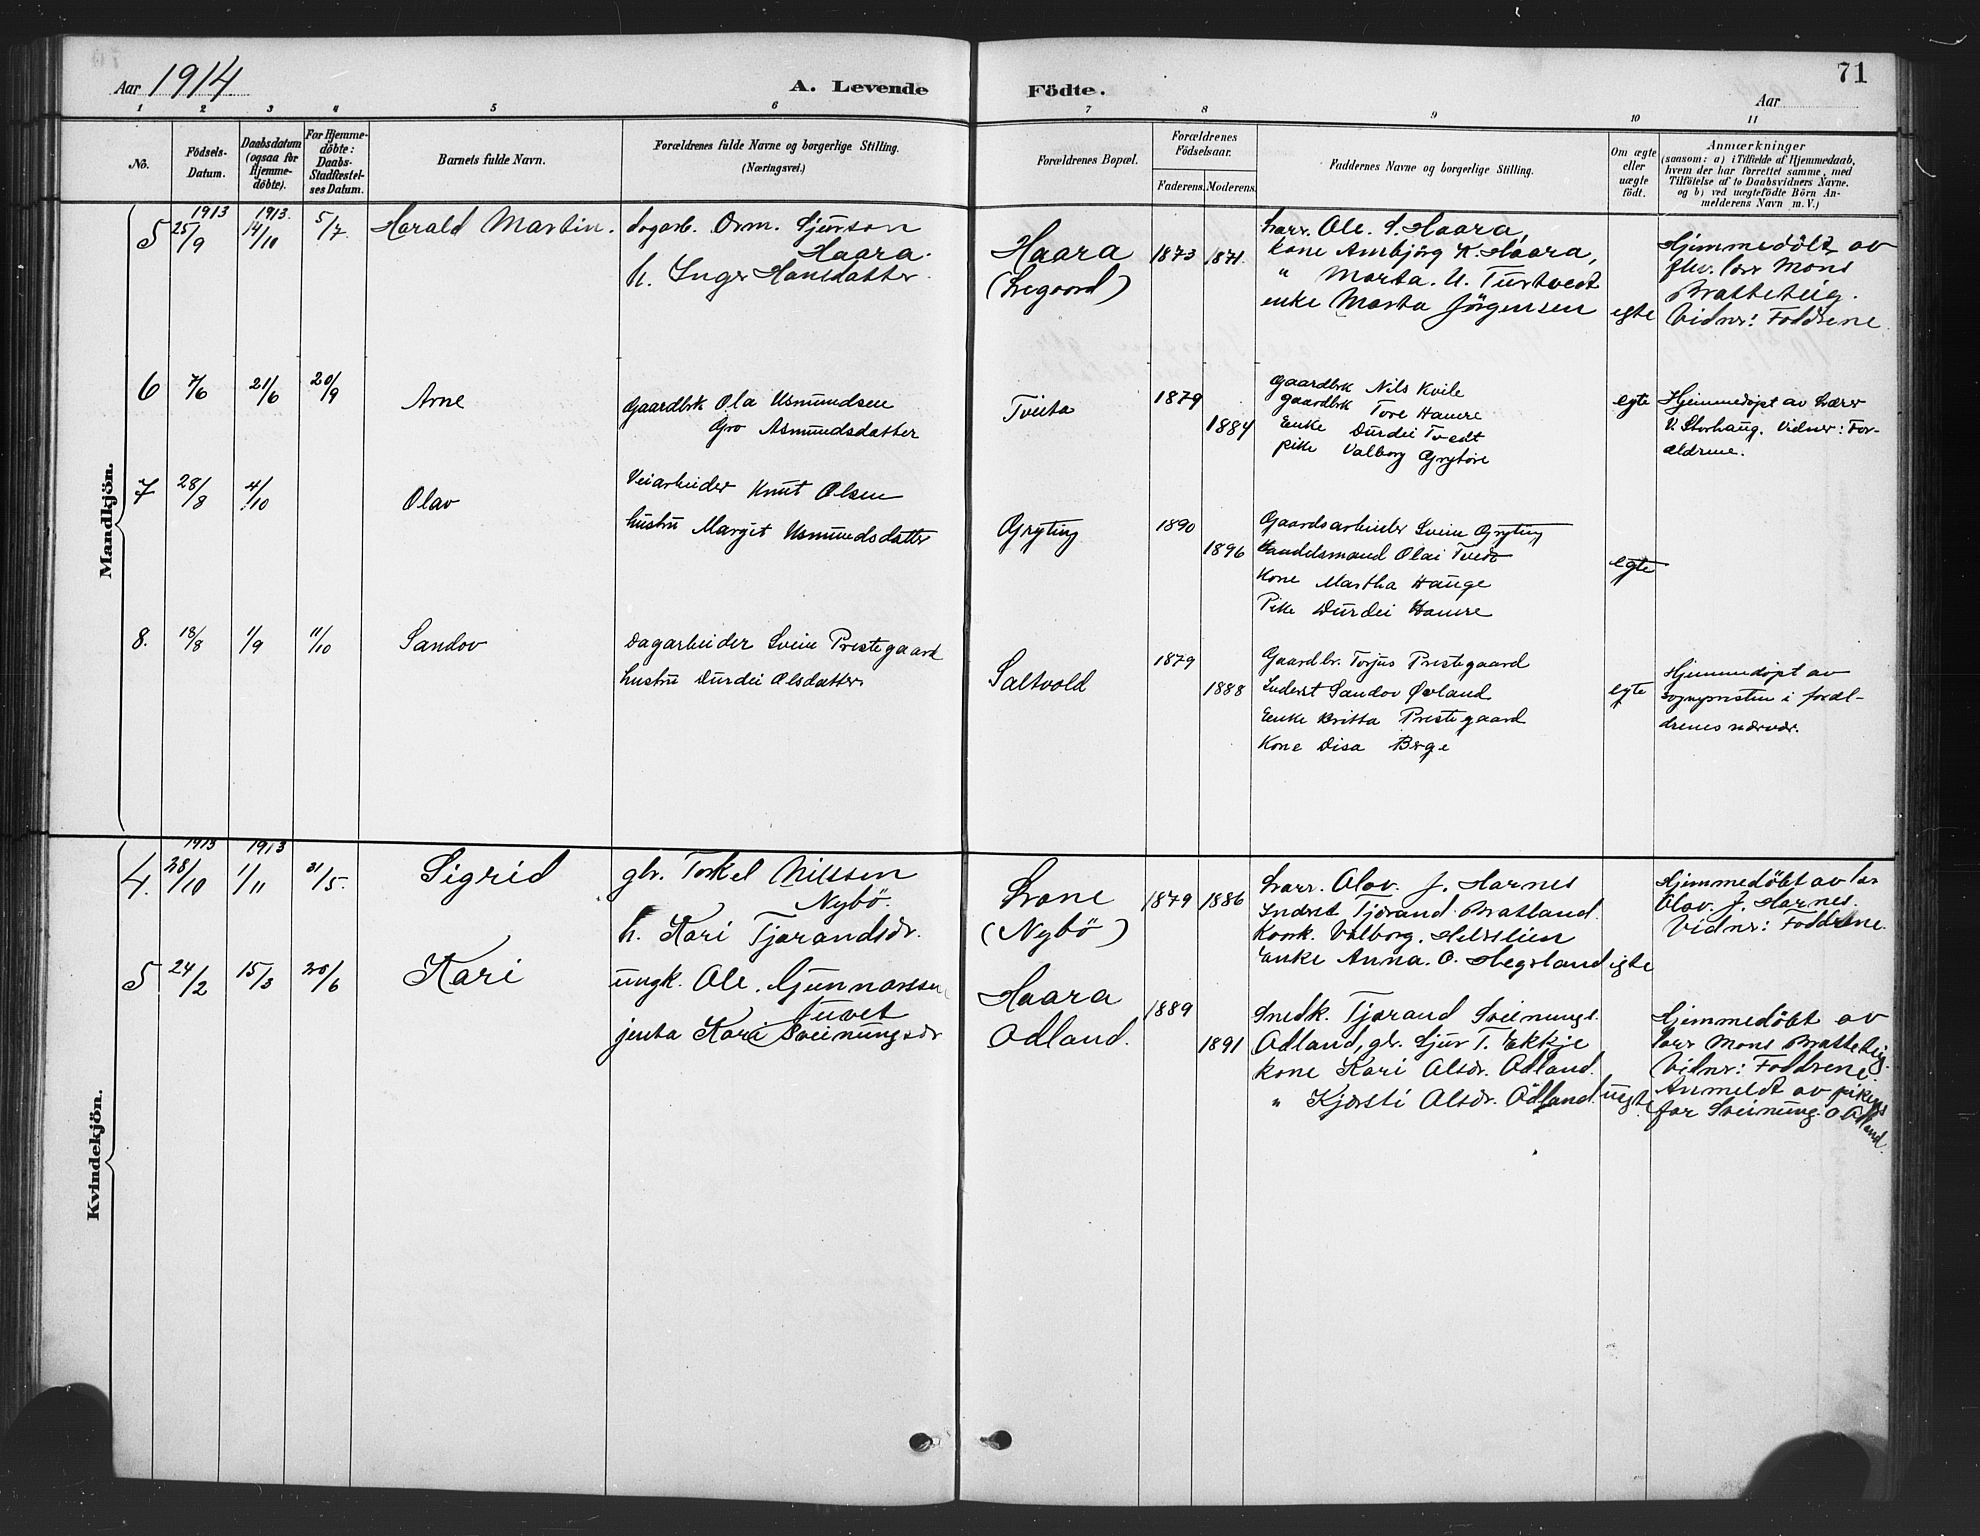 Aar 1914
A. Levende Födte.
71
Aar
1 2 3 4 5 6 7 8 9 10 11
No.
Födsels-Datum.
Daabsdatum (ogsaa for Hjemmedöbte).
For Hjemmedöbte: Daabs-Stadfæstelses Datum.
Barnets fulde Navn.
Forældrenes fulde Navne og borgerlige Stilling. (Næringsvei.)
Forældrenes Bopæl.
Forældrenes Födselsaar.
Faderens. Moderens.
Faddernes Navne og borgerlige Stilling.
Om ægte eller uægte födt.
Anmærkninger
(saasom: a) i Tilfælde af Hjemmedaab,
hvem der har forrettet samme, med
Tilföielse af to Daabsvidners Navne.
og b) ved uægtefödte Börn An-
melderens Navn m. V.)
Mandkjön.
5 1913 25/9 1913. 14/10 5/7. Harald Martin.
dagarb. Orm. Sjurson
Haara.
h. Inger Hansdatter.
Haara
1873 1871.
Lærr. Ole. S. Haara,
kone Ambjörg K. Haara,
" Marta. U. Turtvedt
enke Marta Jörgensen
egte
Hjemmedöbt av
fhv. lærr Mons
Bratteteig.
Vidnr: Foldrene
6 7/6 21/6 20/9 Arne
Gaardbrk Ola Asmundsen
Gro Asmundsdatter
Tveita
1879
1884
Gaardbrk Nils Kvile
gaardbrk Tore Hamre
Enke Durdei Tvedt
pike Valborg Grytöre
egte
Hjemmedöpt av Lærer
V. Storhaug. Vidner: For-
ældrene.
7 28/8 4/10 Olav
Veiarbeider Knut Olsen
hustru Margit Asmundsdatter
Gryting
1890
1896
Gaardsarbeider Svein Gryting
Handelsmand Olai Tvedt
Kone Martha Hauge
Pike Durdei Hamre
egte
8. 18/8 1/9 11/10 Sandov
Dagarbeider Svein Prestegaard
hustru Durdei Olsdatter
Saltvold
1879
1888
Gaardbr. Torjus Prestegaard
Inderst Sandov Øvland
Enke Britta Prestegaard
Kone Disa Berge
egte
Hjemmedöpt av
sognpresten i foræl-
drenes nærvær.
Kvindekjön.
4. 1913 28/10 1913 1/11 31/5. Sigrid
gbr. Torkel Nilssen
Nybö.
h. Kari Tjærandsdr.
(Nybö)
1879 1886
Lærr. Olav. J. Harnes
Indrst Tjærand Bratland.
Enke Anna. O. Hegeland
egte
Hjemmedöbt av lær
Olav. J. Harnes.
Vidnr: Foldrene.
5 24/2 15/3 28/6 Kari
ungk. Ole. Gunnarssen
Tuvet
jenta Kari Sveinungsdr
Haara
Odland.
1889
1891
Snedk. Tjærand Sveinungs.
Odland, gb. Sjur T. Ekkje
kone Kari Olsdr. Odland.
" Kjersti Olsdr. Odland.
uegte
Hjemmedöbt av
lærr Mons Bratteteig.
Vidnr: Foldrene.
Anmeldt av pikens
far Sveinung. O Odland.